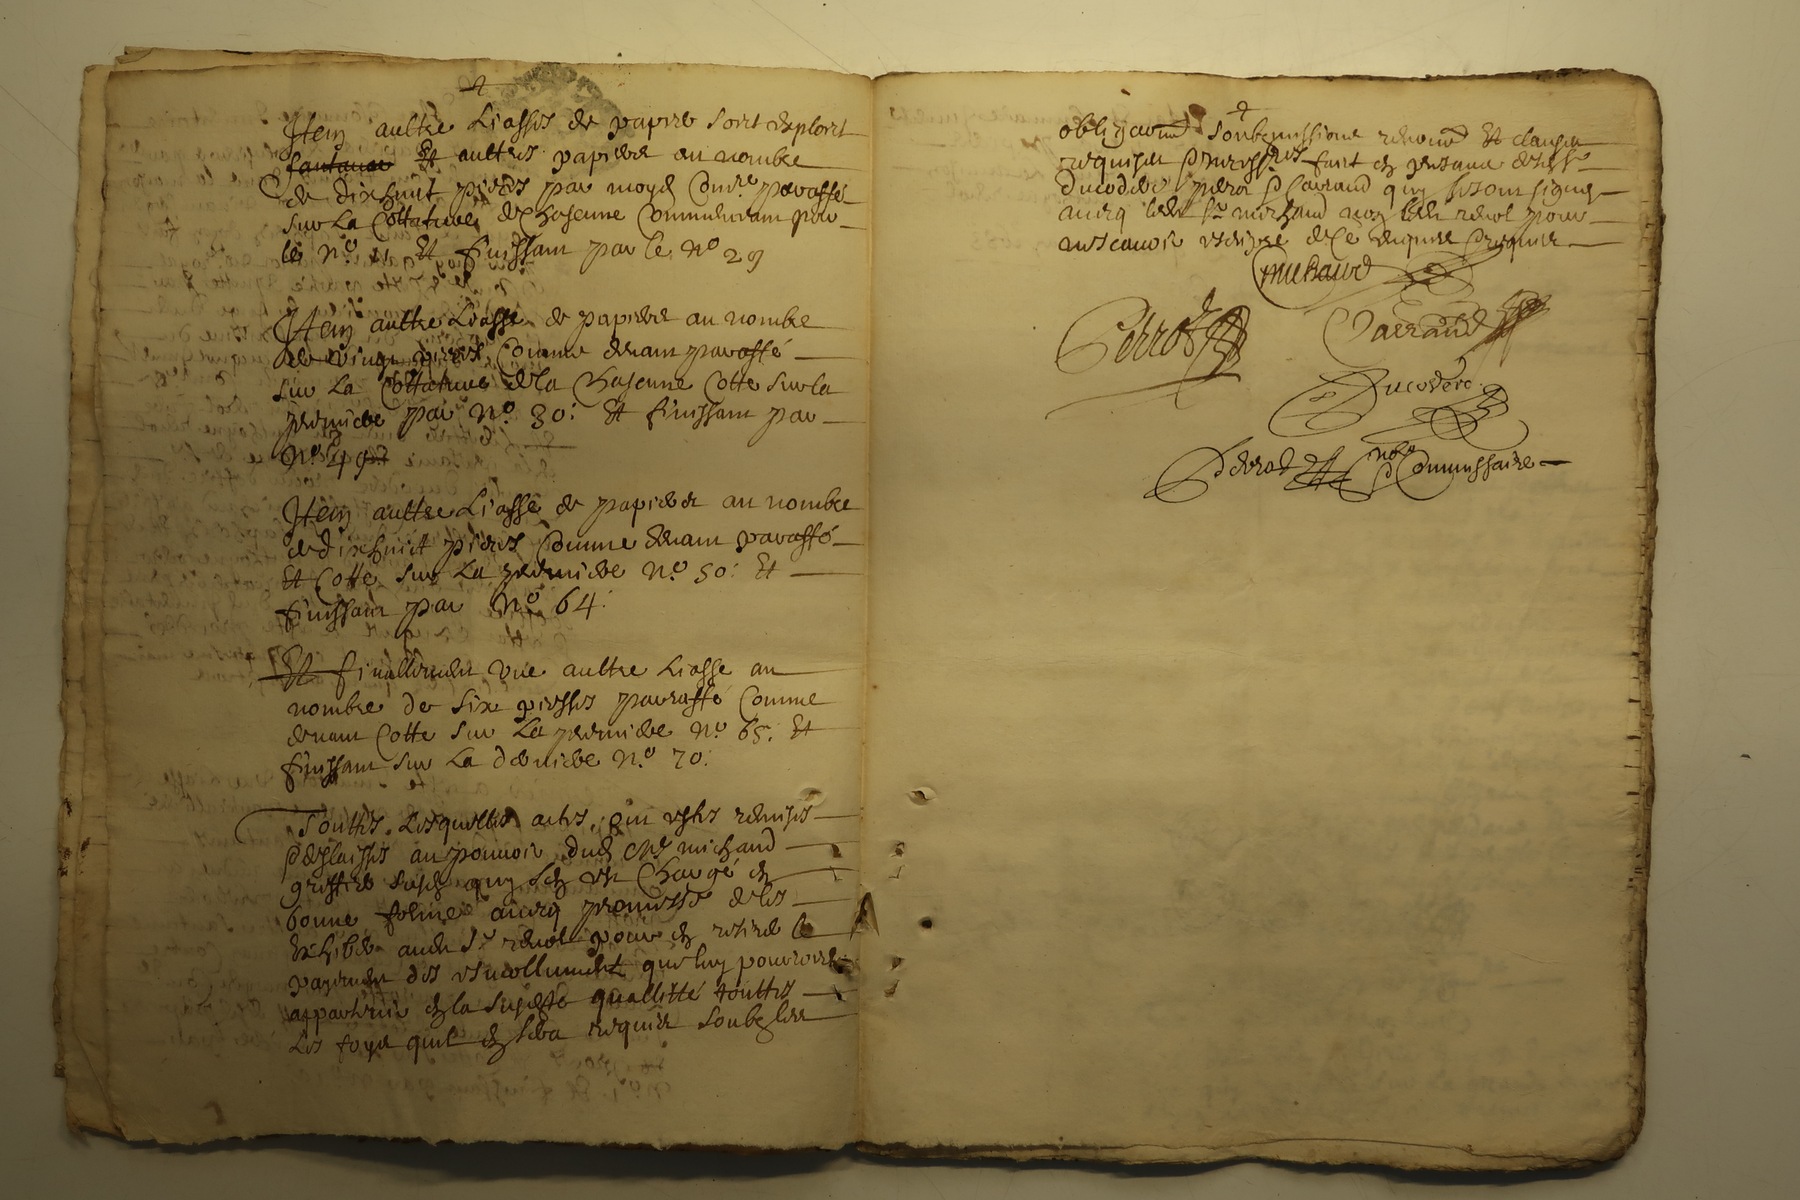 Item aultre Liasses de papier soit exploit
Et aultres papiers au nombre
de dixhuict pieces par moyd Comre paraffé
sur La Cottature de Chascune Commencant par
le No. 11 Et finissant par le No 29
Item aultre Liasse de papiers au nombre
de vingt pieces Comme devant paraffé
sur La Cottature de la Chascune Cotte sur la
premiere par No. 30: Et finissant par
No. 49
Item aultre Liasse de papiers au nombre
de dixhuict pieces Comme devant paraffé
Et Cotte sur La premiere No. 50: Et
finissant par No. 64:
Et finallement Une aultre Liasse au
nombre de Six piesses parraffé Comme
devant Cotte sur La premiere No. 65: Et
finissant sur La derniere No. 70:
Touttes Lesquelles actes ont estes remises
au pouvoir dud Me michaud
greffier quy sen est Chargé en
bonne forme avecq promesse de les
exhiber aud Sr pour en retirer le
payement des esmollument que luy pourroient
appartenir en la qualitté touttes
Les foys quil en sera requier soub les
obligaond soubzmissions Et clauses
requises fait en presence
Ducoderc Sarraud quy se sont signes
avecq led Sr michaud non led pour
ne scavoir escripre de ce enquire requier
Michaud
Perrot
Sarraud
Ducoderc
Perrot nore Commissaire